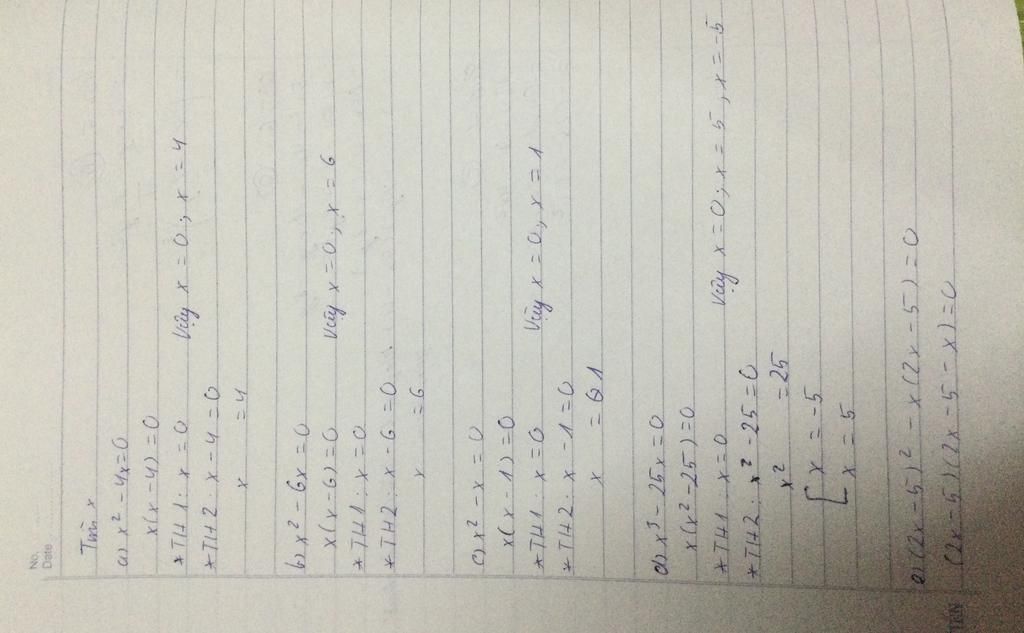 No.
Date
Tìm x
a) x² - 4x = 0
x(x - 4) = 0
* TH1: x = 0
Vậy x = 0; x = 4
* TH2: x - 4 = 0
x = 4
b) x² - 6x = 0
x(x - 6) = 0
Vậy x = 0; x = 6
* TH1: x = 0
* TH2: x - 6 = 0
x = 6
c) x² - x = 0
x(x - 1) = 0
* TH1: x = 0
Vậy x = 0; x = 1
* TH2: x - 1 = 0
x = 1
d) x³ - 25x = 0
x(x² - 25) = 0
* TH1: x = 0
Vậy x = 0; x = 5; x = -5
* TH2: x² - 25 = 0
x² = 25
[ x = -5
x = 5
e) (2x - 5)² - x(2x - 5) = 0
(2x - 5)(2x - 5 - x) = 0